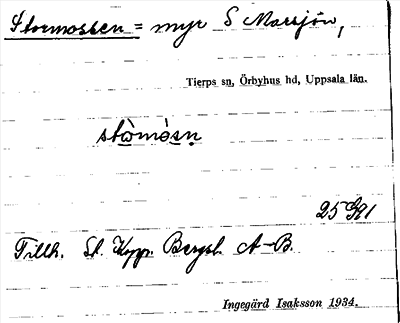 Stormossen = myr S Marsjön,
Tierps sn, Örbyhus hd, Uppsala län.
stòrmósn̥
Tillh. St. Koppr. Bergsl. A-B.
Ingegärd Isaksson 1934.